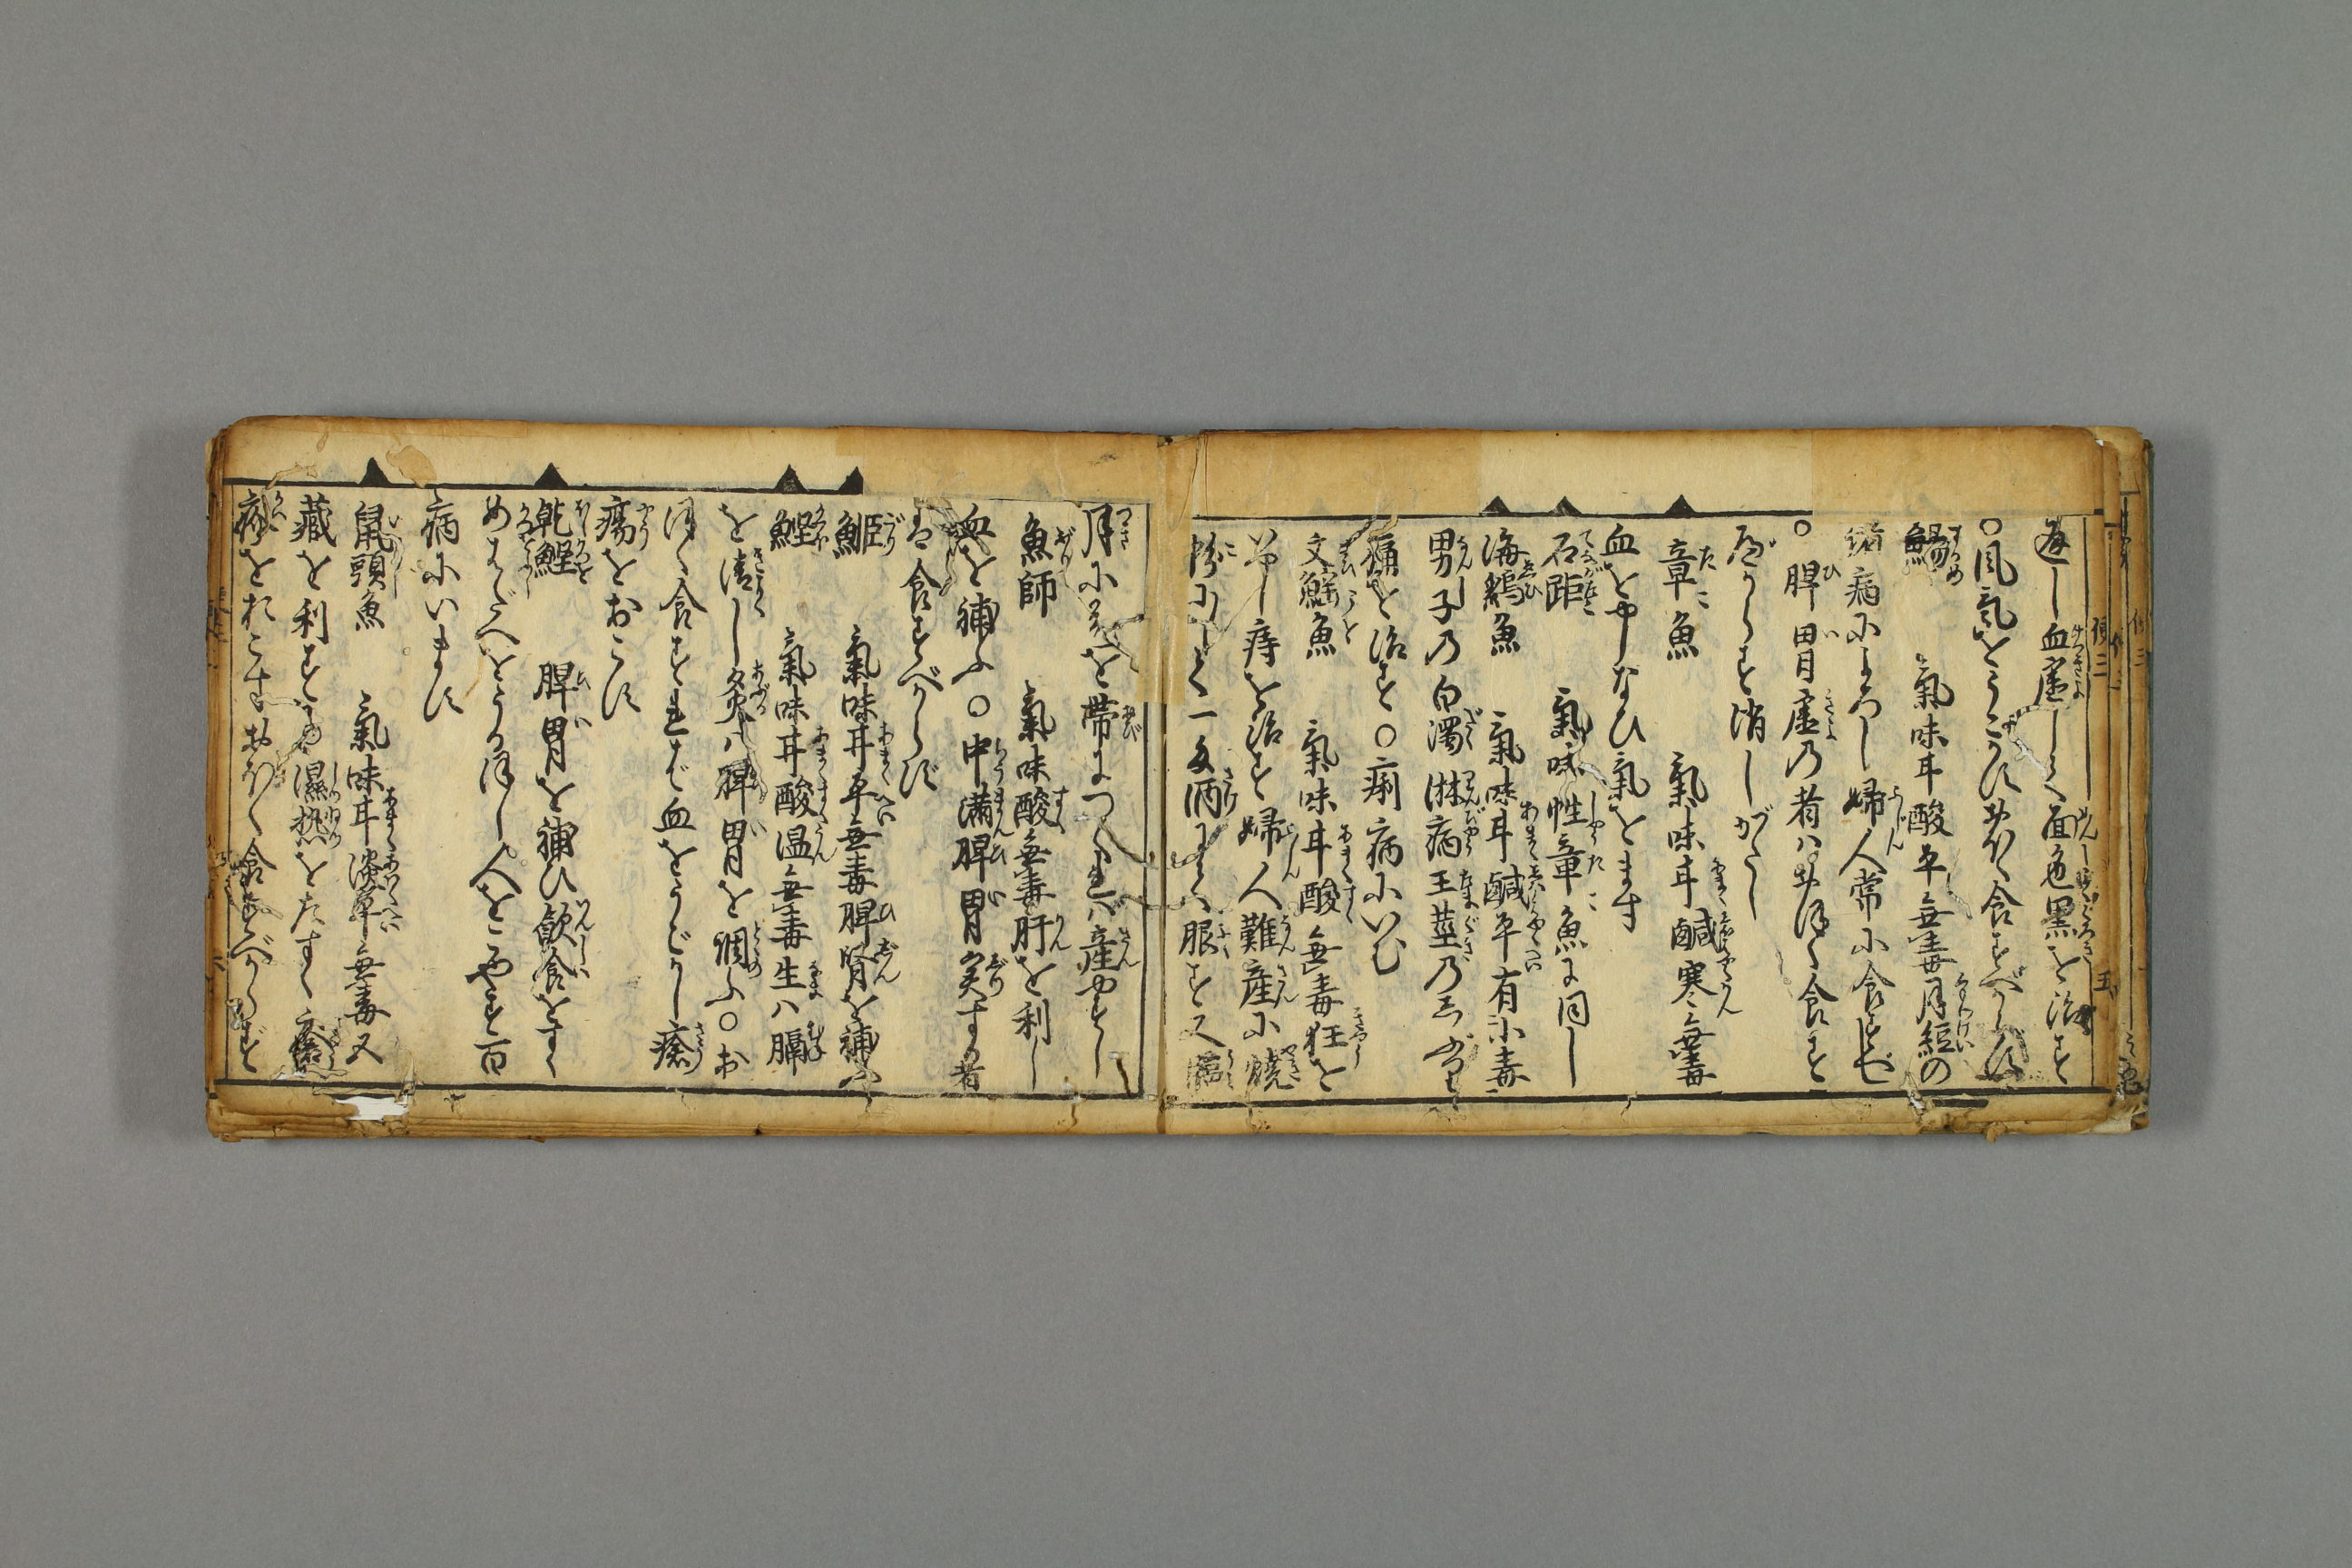 血虚して面色黒を治す
〇風氣をうごかすおほく食すべからず
鰑 氣味甘酸平無毒月経の
病によろし婦人常に食すべし
〇脾胃虚の者はおほく食す
べからず消しがたし
章魚 氣味甘鹹寒無毒
血をやしなひ氣をます
石距 氣味性章魚に同し
海鷂魚 氣味甘鹹平有小毒
男子の白濁淋病玉莖の
痛を治す〇痢病にいむ
文鰩魚 氣味甘酸無毒狂を
やし痔を治す婦人難産に焼
粉にして一匁酒にて服す又臨
月に是を帯につくれば産やすし
魚師 氣味酸無毒肝を利し
血を補ふ〇中満脾胃実する者
は食すべからず
鮔 氣味甘平無毒脾腎を補ふ
鰹 氣味甘酸温無毒生は膈
を清し炙は脾胃を調ふ〇お
ほく食すれば血をうごかし瘡
瘍をおこす
乾鰹 脾胃を補ひ飲食をすゝ
めはだへをうるほし人をこやす百
病にいます
鼠頭魚 氣味甘淡平無毒又
藏を利す
濕熱をたすく
をおこすおほく食すべからず